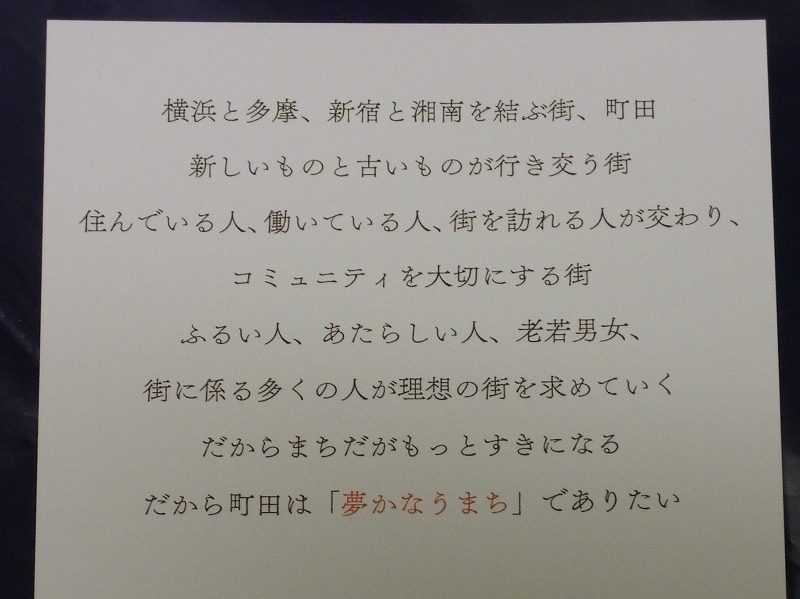 横浜と多摩、新宿と湘南を結ぶ街、町田
新しいものと古いものが行き交う街
住んでいる人、働いている人、街を訪れる人が交わり、
コミュニティを大切にする街
ふるい人、あたらしい人、老若男女、
街に係る多くの人が理想の街を求めていく
だからまちだがもっとすきになる
だから町田は「夢かなうまち」でありたい